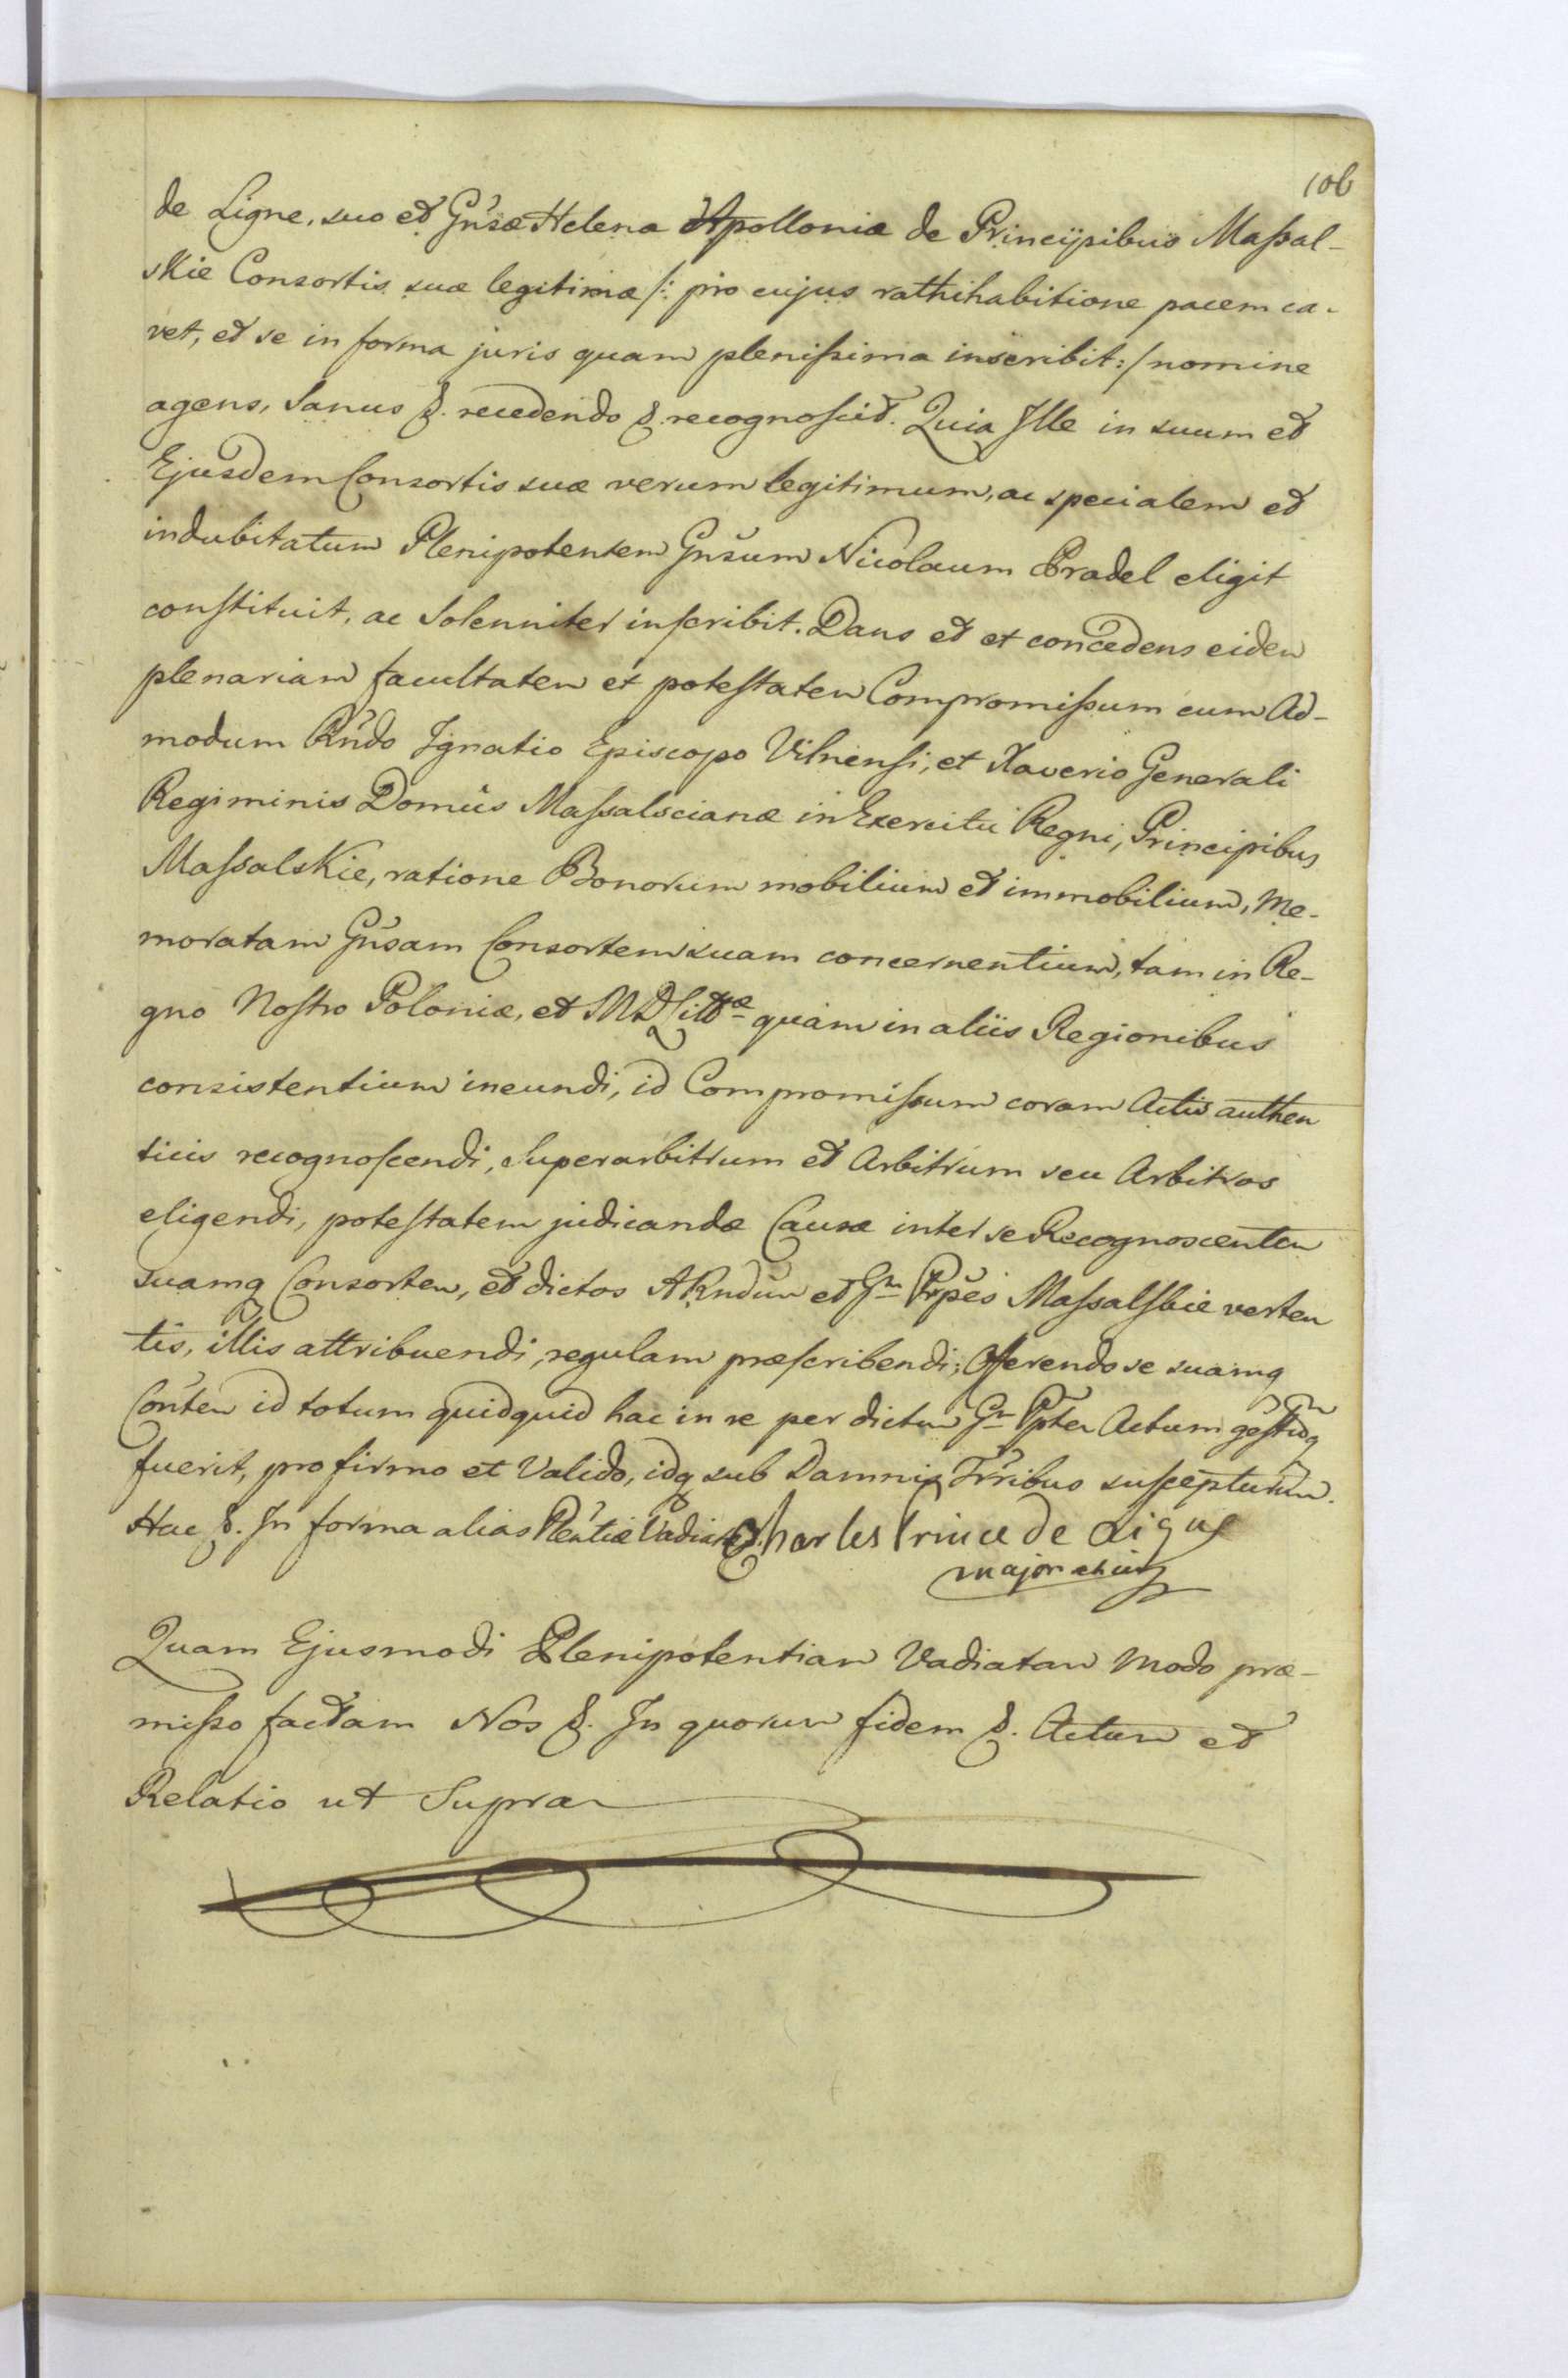 106
de Ligne, suo et Gn̄sæ Helenæ Apolloniæ de Principibus Massal-
skie Consortis suæ legitimæ /: pro cujus rathihabitione pacem ca-
vet, et se in forma juris quam plenissima inscribit :/ nomine
agens, Sanus &. recedendo &. recognoscit. Quia Ille in suum et
Ejusdem Consortis suæ verum legitimum, ac specialem et
indubitatum Plenipotentem Gnsum Nicolaum Pradel eligit
constituit, ac Solenniter inscribit. Dans et et concedens eidem
plenariam facultatem et potestatem Compromissum cum Ad-
modum Rn̄do Ignatio Episcopo Vilnensi, et Xaverio Generali
Regiminis Domûs Massalscianæ in Exercitu Regni, Principibus
Massalskie, ratione Bonorum mobilium et immobilium, Me-
moratam Gn̄sam Consortem suam concernentium, tam in Re-
gno Nostro Poloniæ, et MDLittæ quàm in aliis Regionibus
consistentium ineundi, id Compromissum coram Actis authen
ticis recognoscendi, Superarbitrum et Arbitrum seu Arbitros
eligendi, potestatem judicandæ Causæ inter se Recognoscentem
suamq Consortem, et dictos ARndūm et Gm Prpēs Massalskie verten
tis, illis attribuendi, regulam præscribendi; Offerendo se suamq
Cōntem id totum quidquid hac in re per dictum Gm Pptem Actum gestūq
fuerit, pro firmo et Valido, idq sub Damnis Trribus suscepturum.
Hac &. In forma alias Plēntiæ Vadiatæ. Charles Prince de Ligne
Quam Ejusmodi Plenipotentiam Vadiatam Modo præ-
misso factam Nos &. In quorum fidem &. Actum et
Relatio ut Supra